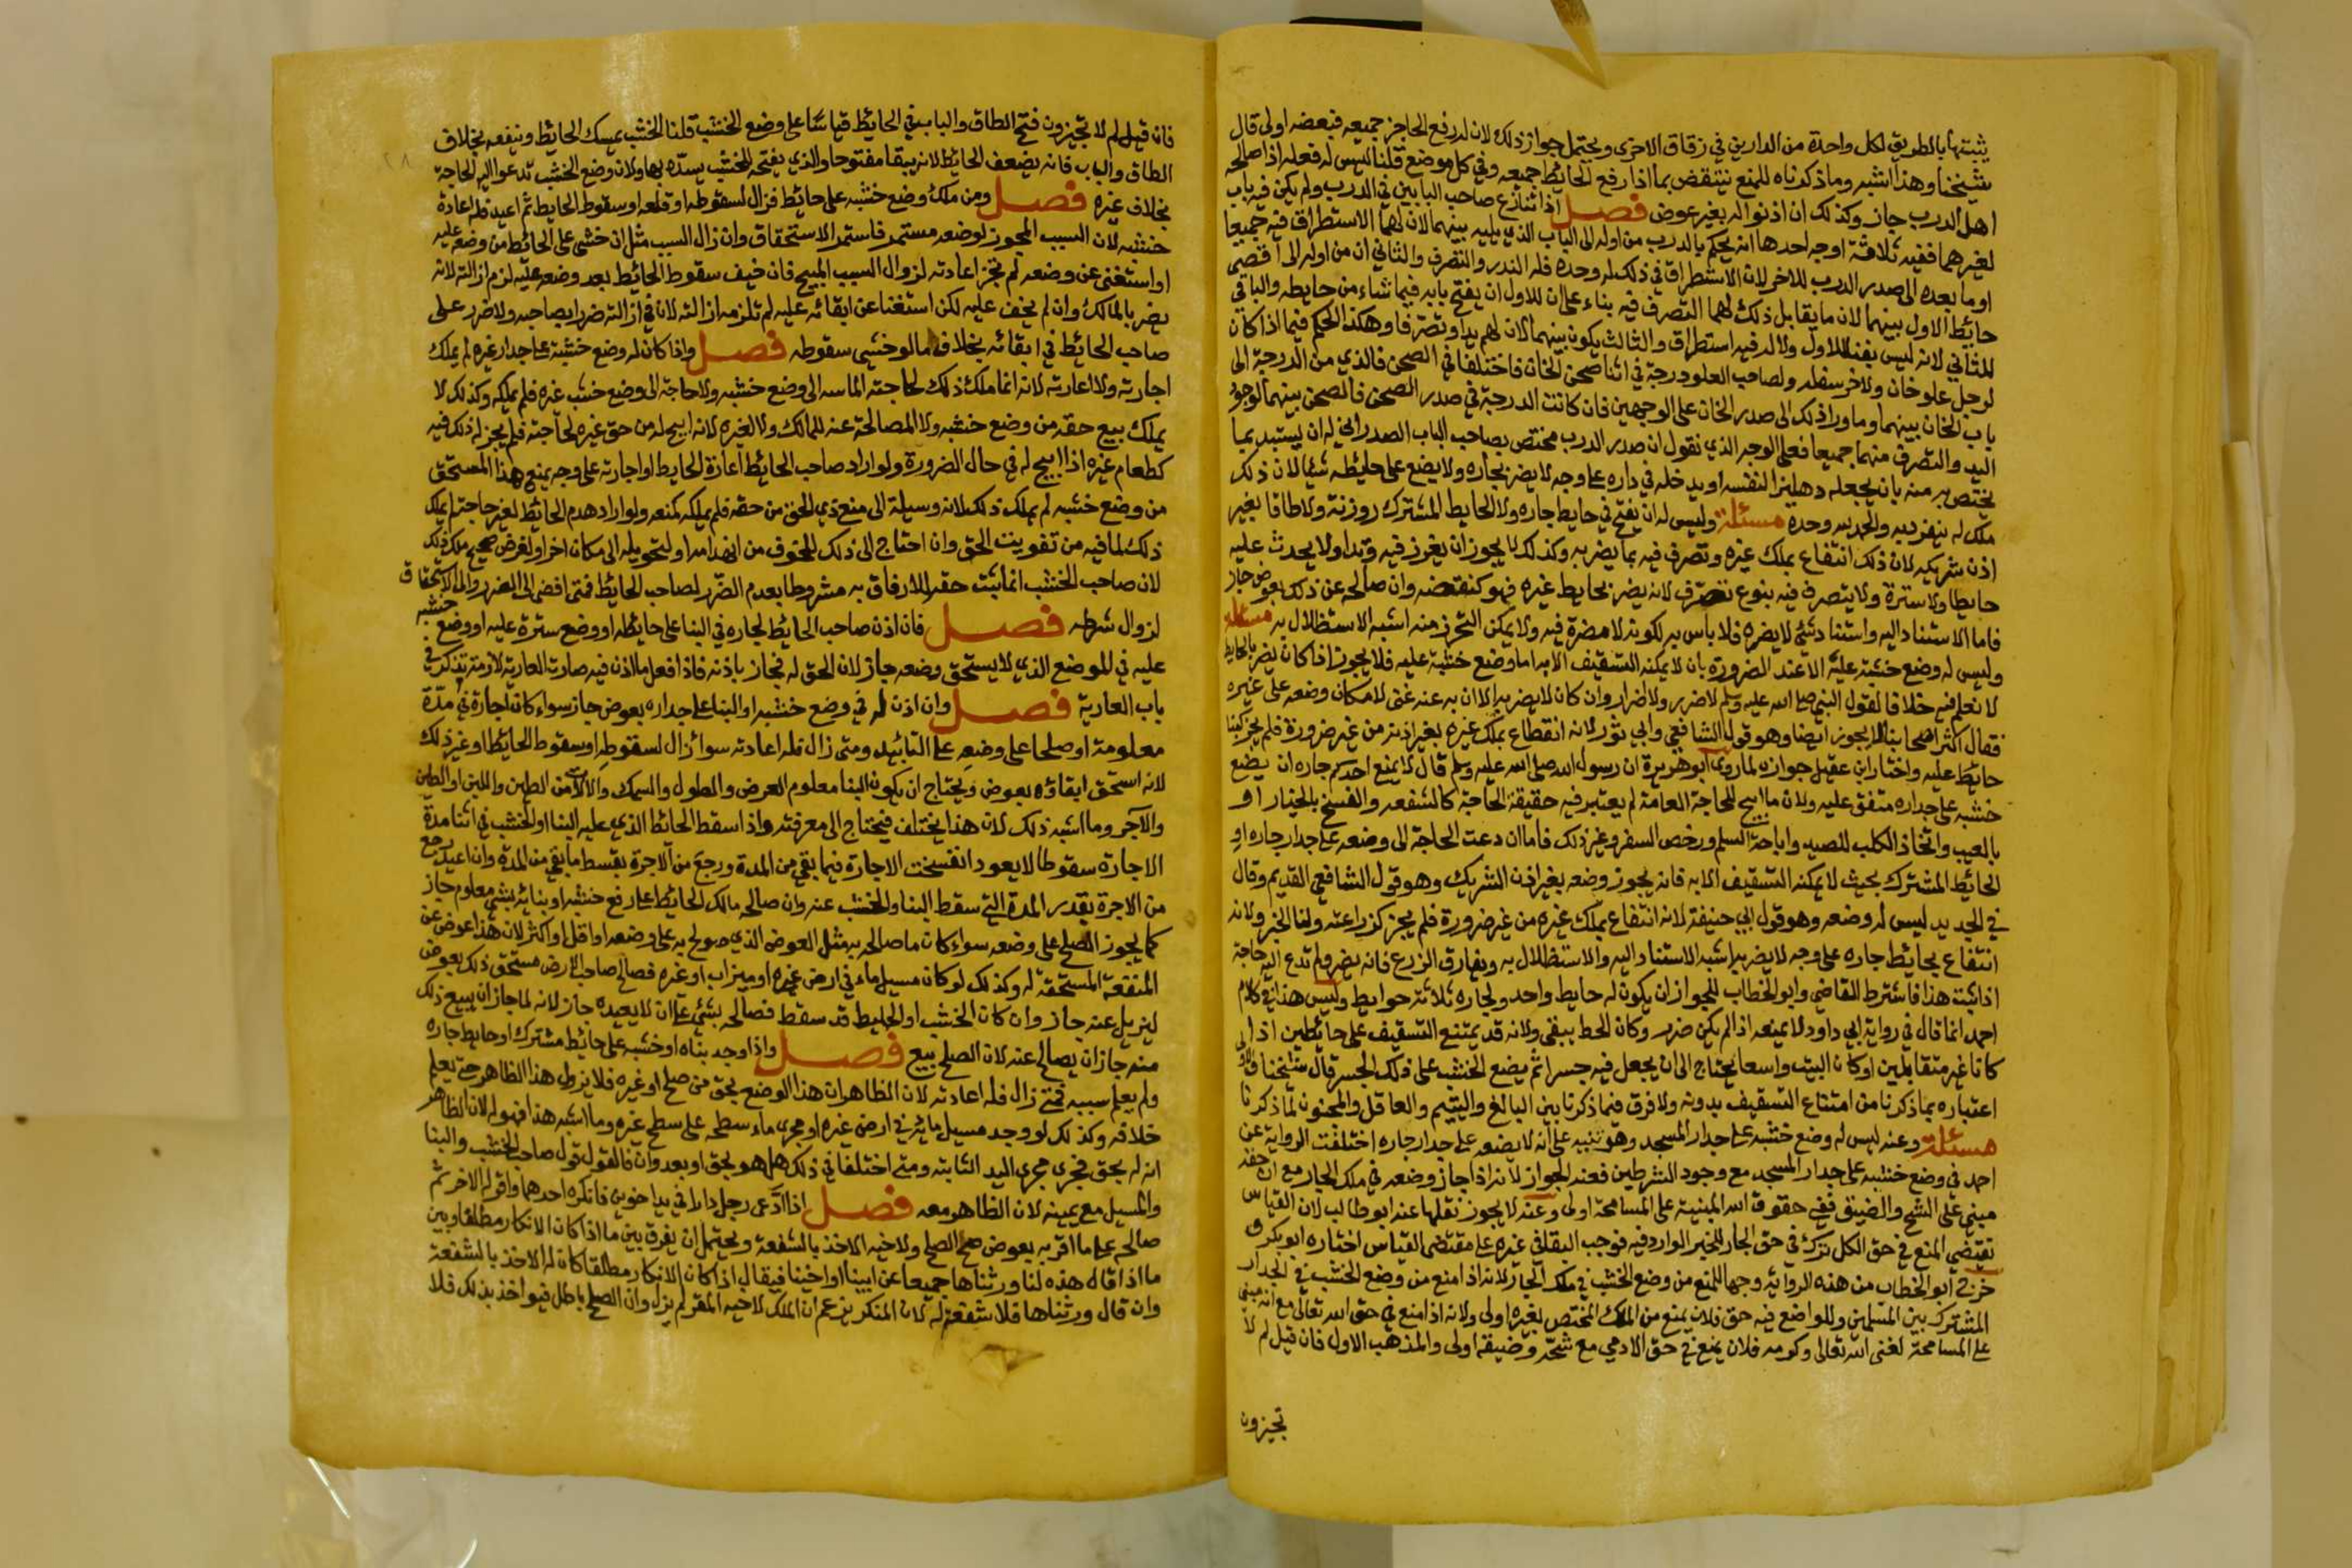 يثبت بها بالطريق لكل واحدة من الدارين في زقاق الاخرى ويحتمل جواز ذلك لان له رفع الحاجز جميعه فبعضه اولى قال
شيخنا وهذا اشبه وما ذكرناه للمنع ينتقض بما اذا رفع الحائط جميعه وفي كل موضع قلنا ليس له فعله اذا صالحه
اهل الدرب جاز وكذلك ان اذنوا له بغير عوض فصل اذا تنازع صاحب البابين في الدرب ولم يكن فيه باب
لغيرهما ففيه ثلاثة اوجه احدها انه يحكم بالدرب من اوله الى الباب الذي يليه بينهما لان لهما الاستطراق فيه جميعا
او ما بعده الى صدر الدرب للاخر لان الاستطراق في ذلك له وحده فله اليد والتصرف والثاني ان من اوله الى اقصى
حائط الاول بينهما لان ما يقابل ذلك لهما التصرف فيه بناء على ان للاول ان يفتح بابه فيما شاء من حايطه والباقي
للثاني لانه ليس بفناء للاول ولا له فيه استطراق والثالث يكون بينهما لان لهم يدا وتصرفا وهكذا الحكم فيما اذا كان
لرجل علو خان ولاخر سفله ولصاحب العلو درجة في اثنا صحن الخان فاختلفا في الصحن فالذي من الدرجة الى
باب الخان بينهما وما وراء ذلك الى صدر الخان على الوجهين فان كانت الدرجة في صدر الصحن فالصحن بينهما لوجود
اليد والتصرف منهما جميعا فعلى الوجه الذي نقول ان صدر الدرب مختص بصاحب الباب الصدراني له ان يستبد بما
يختص به منه بان يجعله دهليزا لنفسه او يدخله في داره على وجه لا يضر بجاره ولا يضع على حايطه شيئا لان ذلك
ملك له ينفرد به والحمد لله وحده مسئلة وليس له ان يفتح في حايط جاره ولا الحايط المشترك روزنة ولا طاقا بغير
اذن شريكه لان ذلك انتفاع بملك غيره وتصرف فيه بما يضر به وكذلك لا يجوز ان يغرز فيه وتدا ولا يحدث عليه
حايطا ولا سترة ولا يتصرف فيه بنوع تصرف لانه يضر بحايط غيره فهو كنقضه وان صالحه عن ذلك بعوض جاز
فاما الاستناد اليه واسناد شئ لا يضره فلا باس به لكونه لا مضرة فيه ولا يمكن التحرز منه اشبه الاستظلال به مسئلة
وليس له وضع خشبه عليه الا عند الضرورة بان لا يمكنه التسقيف الا به اما وضع خشبة عليه فلا يجوز اذا كان يضر بالحايط
لا نعلم فيه خلافا لقول النبي صلى الله عليه وسلم لا ضرر ولا اضرار وان كان لا يضر به الا ان به عنه غنى لامكان وضعه على غيره
فقال اكثر اصحابنا لا يجوز ايضا وهو قول الشافعي وابي ثور لانه انتفاع بملك غيره بغير اذنه من غير ضرورة فلم يجز كبنا
حائط عليه واختار ابن عقيل جوازه لما روى ابو هريرة ان رسول الله صلى الله عليه وسلم قال لا يمنع احدكم جاره ان يضع
خشبه على جداره متفق عليه ولان ما ابيح للحاجة العامة لم يعتبر فيه حقيقة الحاجة كالشفعه والفسخ بالخيار او
بالعيب واتخاذ الكلب للصيد واباحة السلم ورخص السفر وغير ذلك فاما ان دعت الحاجة الى وضعه على جدار جاره او
الحائط المشترك بحيث لا يمكنه التسقيف الا به فانه يجوز وضعه بغير اذن الشريك وهو قول الشافعي القديم وقال
في الجديد ليس له وضعه وهو قول ابي حنيفة لانه انتفاع بملك غيره من غير ضرورة فلم يجز كزراعته ولنا الخبر ولانه
انتفاع بحائط جاره على وجه لا يضر به اشبه الاستناد اليه والاستظلال به ويفارق الزرع فانه يضر ولم تدع اليه حاجة
اذا ثبت هذا فاشترط القاضي وابو الخطاب للجواز ان يكون له حايط واحد ولجاره ثلاثة حوايط وليس هذا في كلام
احمد انما قال في رواية ابي داود لا يمنعه اذا لم يكن ضرر وكان الحايط يبقى ولانه قد يمتنع التسقيف على حائطين اذا
كانا غير متقابلين او كان البيت واسعا يحتاج الى ان يجعل فيه جسرا ثم يضع الخشب على ذلك الجسر قال شيخنا فالاولى
اعتباره بما ذكرنا من امتناع التسقيف بدونه ولا فرق فيما ذكرنا بين البالغ واليتيم والعاقل والمجنون لما ذكرنا
مسئلة وعنه ليس له وضع خشبه على جدار المسجد وهو تنبيه على انه لا يضعه على جدار جاره اختلفت الرواية عن
احمد في وضع خشبه على جدار المسجد مع وجود الشرطين فعنه الجواز لانه اذا جاز وضعه في ملك الجار مع ان حقه
مبني على الشح والضيق ففي حقوق الله المبنية على المسامحة اولى وعنه لا يجوز نقلها عنه ابو طالب لان القياس
يقتضي المنع في حق الكل ترك في حق الجار للخبر الوارد فيه فوجب البقا في غيره على مقتضى القياس اختاره ابو بكر و
خرج ابو الخطاب من هذه الرواية وجها للمنع من وضع الخشب في ملك الجار لانه اذا منع من وضع الخشب في الجدار
المشترك بين المسلمين وللواضع فيه حق فلان يمنع من الملك المختص بغيره اولى ولانه اذا منع في حق الله تعالى مع انه مبني
على المسامحة لغنى الله تعالى وكرمه فلان يمنع في حق الادمي مع شحه وضيقه اولى والمذهب الاول فان قيل لم لا
تجيزون
فان قيل لم لا تجيزون فتح الطاق والباب في الحائط قياسا على وضع الخشب قلنا الخشب يمسك الحايط وينفعه بخلاف
الطاق والباب فانه يضعف الحايط لانه يبقا مفتوحا والذي يفتحه للخشب يسده بها ولان وضع الخشب تدعوا اليه الحاجة
بخلاف غيره فصل ومن ملك وضع خشبه على حائط فزال لسقوطه او قلعه او سقوط الحايط ثم اعيد فله اعادة
خشبه لان السبب المجوز لوضعه مستمر فاستمر الاستحقاق وان زال السبب مثل ان خشى على الحائط من وضعه عليه
او استغنى عن وضعه لم تجز اعادته لزوال السبب المبيح فان خيف سقوط الحايط بعد وضعه عليه لزم ازالته لانه
يضر بالمالك وان لم يخف عليه لكن استغنا عن ابقائه عليه لم تلزمه ازالته لان في ازالته ضرا بصاحبه ولا ضرر على
صاحب الحائط في ابقائه بخلاف ما لو خشى سقوطه فصل واذا كان له وضع خشبه على جدار غيره لم يملك
اجارته ولا اعارته لانه انما ملك ذلك لحاجته الماسه الى وضع خشبه ولا حاجة الى وضع خشب غيره فلم يملكه وكذلك لا
يملك بيع حقه من وضع خشبه ولا المصالحة عنه للمالك ولا لغيره لانه ابيح له من حق غيره لحاجته فلم يجز له ذلك فيه
كطعام غيره اذا ابيح له في حال الضرورة ولو اراد صاحب الحائط اعارة الحايط او اجارته على وجه يمنع هذا المستحق
من وضع خشبه لم يملك ذلك لانه وسيلة الى منع ذي الحق من حقه فلم يملكه كمنعه ولو اراد هدم الحائط لغير حاجة لم يملك
ذلك لما فيه من تفويت الحق وان احتاج الى ذلك للخوف من انهدامه او لتحويله الى مكان اخر او لغرض صحيح ملك ذلك
لان صاحب الخشب انما يثبت حقه للارفاق به مشروطا بعدم الضرر لصاحب الحايط فمتى افضى الى الضرر زال الاستحقاق
لزوال شرطه فصل فان اذن صاحب الحائط لجاره في البنا على حائطه او وضع سترة عليه او وضع خشبه
عليه في الموضع الذي لا يستحق وضعه جاز لان الحق له فجاز باذنه فاذا فعل ما اذن فيه صارت العارية لازمة تذكر في
باب العارية فصل وان اذن له في وضع خشبه او البنا على جداره بعوض جاز سواء كان اجارة في مدة
معلومة او صلحا على وضعه على التابيد ومتى زال فله اعادته سواء زال لسقوطه او سقوط الحايط او غير ذلك
لانه استحق ابقاؤه بعوض ويحتاج ان يكون البنا معلوم العرض والطول والسمك والالات من الطين واللبن او الطين
والآجر وما اشبه ذلك لان هذا يختلف فيحتاج الى معرفته واذا سقط الحائط الذي عليه البنا او الخشب في اثنا مدة
الاجارة سقوطا لا يعود انفسخت الاجارة فيما بقي من المدة ورجع من الاجرة بقسط ما بقي من المدة وان اعيد رجع
من الاجرة بقدر المدة التي سقط البنا والخشب عنه وان صالحه مالك الحائط على رفع خشبه او بنائه بشئ معلوم جاز
كما يجوز الصلح على وضعه سواء كان ما صالحه به مثل العوض الذي صولح به على وضعه او اقل او اكثر لان هذا عوض عن
المنفعة المستحقة له وكذلك لو كان مسيل ماء في ارض غيره او ميزاب او غيره فصالح صاحب الارض مستحق ذلك بعوض
ليزيله عنه جاز وان كان الخشب او الحايط قد سقط فصالحه بشئ على ان لا يعيده جاز لانه لما جاز ان يبيع ذلك
منه جاز ان يصالح عنه لان الصلح بيع فصل واذا وجد بناه او خشبه على حائط مشترك او حايط جاره
ولم يعلم سببه فمتى زال فله اعادته لان الظاهر ان هذا الوضع بحق من صلح او غيره فلا يزول هذا الظاهر حتى يعلم
خلافه وكذلك لو وجد مسيل مائه في ارض غيره او مجرى ماء سطحه على سطح غيره وما اشبه هذا فهو له لان الظاهر
انه له بحق فجرى مجرى اليد الثابته ومتى اختلفا في ذلك هل هو بحق او بعدوان فالقول قول صاحب الخشب والبنا
والمسيل مع يمينه لان الظاهر معه فصل اذا ادعى رجل دارا في يد اخوين فانكره احدهما واقر له الاخر ثم
صالحه على ما اقر به بعوض صح الصلح ولاخيه الاخذ بالشفعة ويحتمل ان يفرق بين ما اذا كان الانكار مطلقا وبين
ما اذا قال هذه لنا ورثناها جميعا عن ابينا او اخينا فيقال اذا كان الانكار مطلقا كان له الاخذ بالشفعة
وان قال ورثناها فلا شفعة له لان المنكر يزعم ان الملك لاخيه المقر لم يزل وان الصلح باطل فيواخذ بذلك فلا